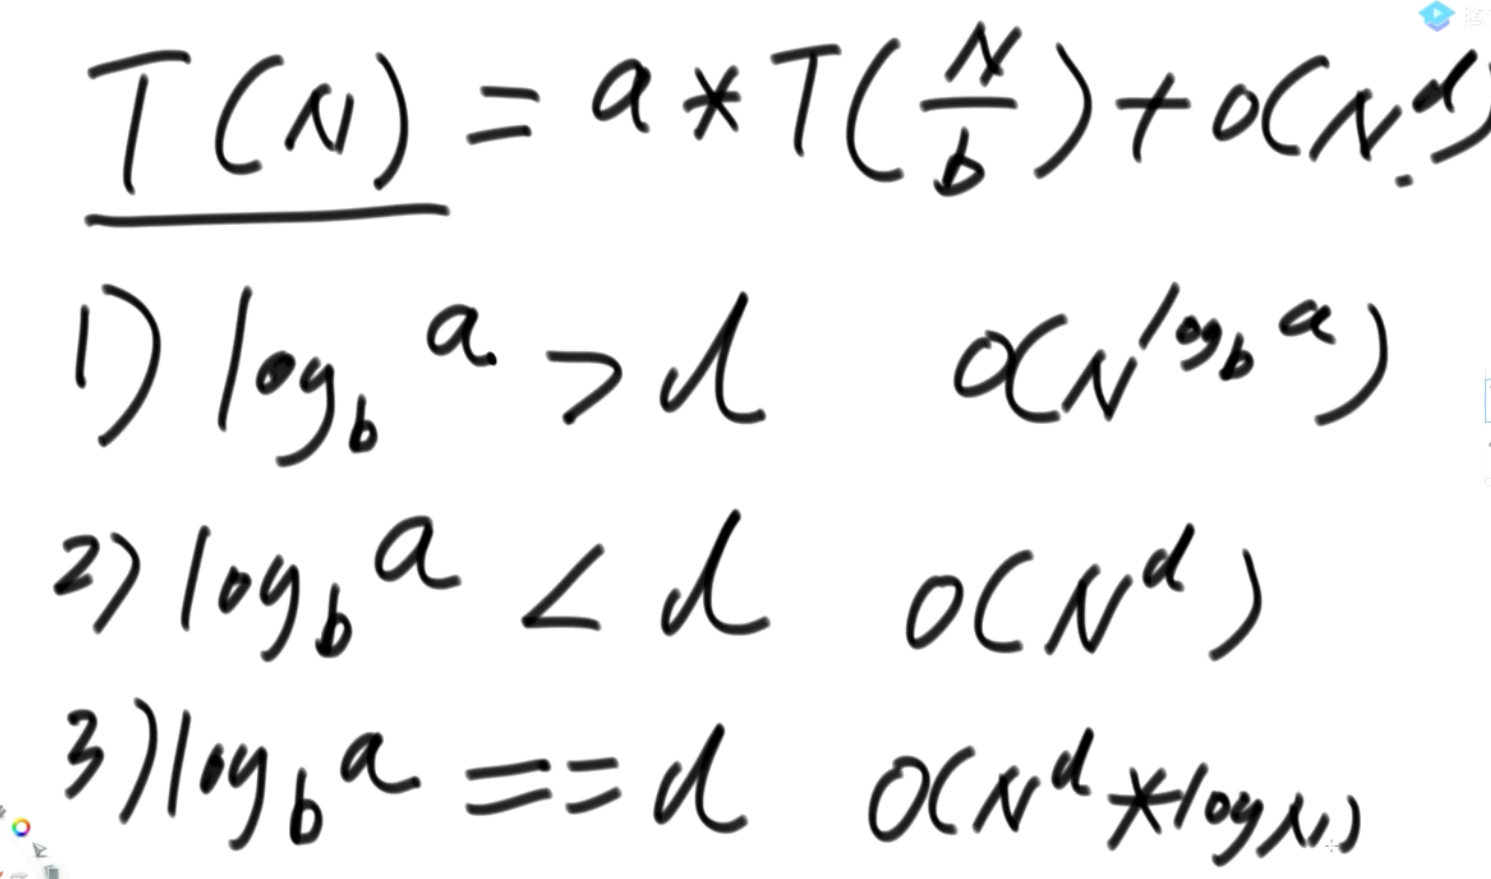 T(N) = a * T(N/b) + O(N^d)
1) log_b a > d O(N^(log_b a))
2) log_b a < d O(N^d)
3) log_b a == d O(N^d * logN)